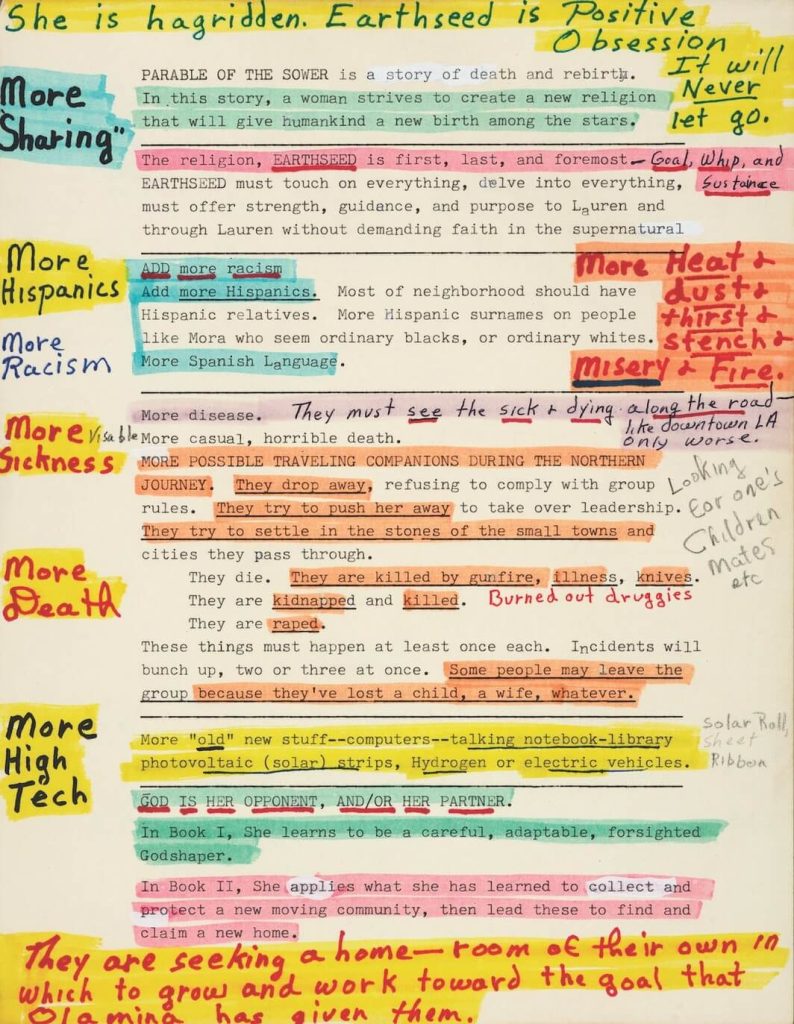 She is hagridden. Earthseed is Positive
Obsession
It will
Never
let go.
More
Sharing"
PARABLE OF THE SOWER is a story of death and rebirth.
In this story, a woman strives to create a new religion
that will give humankind a new birth among the stars.
The religion, EARTHSEED is first, last, and foremost—Goal, Whip, and
Sustaince
EARTHSEED must touch on everything, delve into everything,
must offer strength, guidance, and purpose to Lauren and
through Lauren without demanding faith in the supernatural
More
Hispanics
More
Racism
ADD more racism
Add more Hispanics. Most of neighborhood should have
Hispanic relatives. More Hispanic surnames on people
like Mora who seem ordinary blacks, or ordinary whites.
More Spanish Language.
More Heat &
dust &
thirst &
stench &
Misery & Fire.
More
Sickness
More disease. They must see the sick & dying along the road—
like downtown LA
only worse.
Visable
More casual, horrible death.
MORE POSSIBLE TRAVELING COMPANIONS DURING THE NORTHERN
JOURNEY. They drop away, refusing to comply with group
rules. They try to push her away to take over leadership.
They try to settle in the stones of the small towns and
cities they pass through.
Looking
For one's
Children
Mates
etc
More
Death
They die. They are killed by gunfire, illness, knives.
They are kidnapped and killed. Burned out druggies
They are raped.
These things must happen at least once each. Incidents will
bunch up, two or three at once. Some people may leave the
group because they've lost a child, a wife, whatever.
More
High
Tech
More "old" new stuff--computers--talking notebook-library
photovoltaic (solar) strips, Hydrogen or electric vehicles.
solar Roll,
sheet
Ribbon
GOD IS HER OPPONENT, AND/OR HER PARTNER.
In Book I, She learns to be a careful, adaptable, forsighted
Godshaper.
In Book II, She applies what she has learned to collect and
protect a new moving community, then lead these to find and
claim a new home.
They are seeking a home—room of their own in
which to grow and work toward the goal that
Olamina has given them.